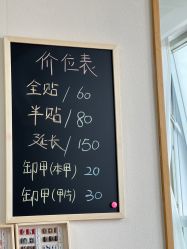 价位表
全贴/60
半贴/80
延长/150
卸甲(本甲) 20
卸甲(甲片) 30